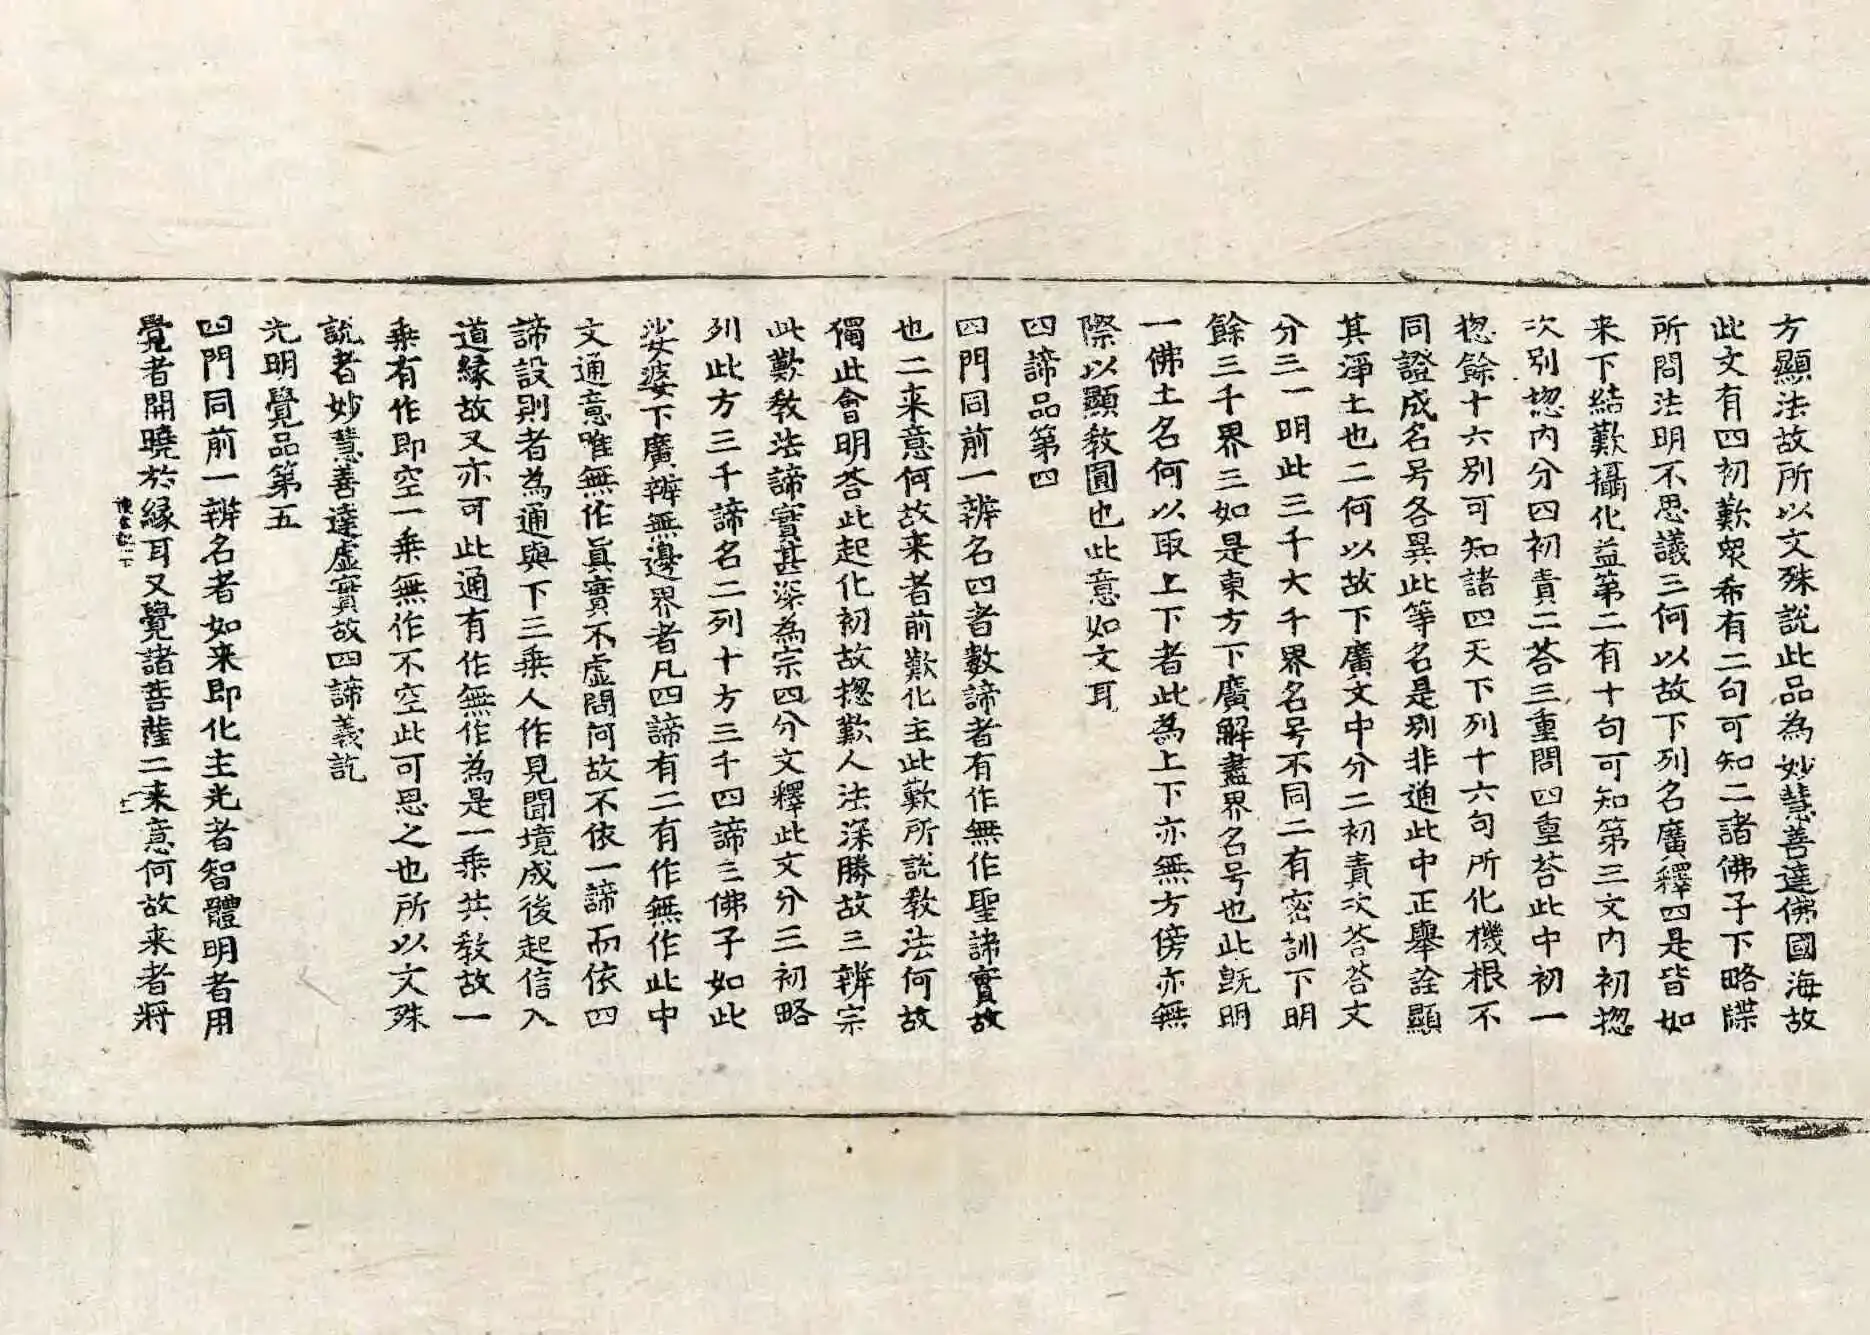 方顯法故所以文殊説此品為妙慧善達佛國海故
此文有四初歎衆希有二句可知二諸佛子下略牒
所問法明不思議三何以故下列名廣釋四是皆如
来下結歎攝化益第二有十句可知第三文内初揔
次別揔内分四初責二荅三重問四重荅此中初一
揔餘十六別可知諸四天下列十六句所化機根不
同證成名号各異此等名是別非通此中正舉詮顯
其淨土也二何以故下廣文中分二初責次荅荅文
分三一明此三千大千界名号不同二有密訓下明
餘三千界三如是東方下廣解盡界名号也此既明
一佛土名何以取上下者此為上下亦無方傍亦無
際以顯教圓也此意如文耳
四諦品第四
四門同前一辨名四者數諦者有作無作聖諦實故
也二来意何故来者前歎化主此歎所説教法何故
獨此會明荅此起化初故揔歎人法深勝故三辨宗
此歎教法諦實甚深為宗四分文釋此文分三初略
列此方三千諦名二列十方三千四諦三佛子如此
娑婆下廣辨無邊界者凡四諦有二有作無作此中
文通意唯無作真實不虚問何故不依一諦而依四
諦設則者為通與下三乘人作見聞境成後起信入
道縁故又亦可此通有作無作為是一乘共教故一
乘有作即空一乘無作不空此可思之也所以文殊
説者妙慧善達虚實故四諦義訖
光明覺品第五
四門同前一辨名者如来即化主光者智體明者用
覺者開曉於縁耳又覺諸菩薩二来意何故来者將